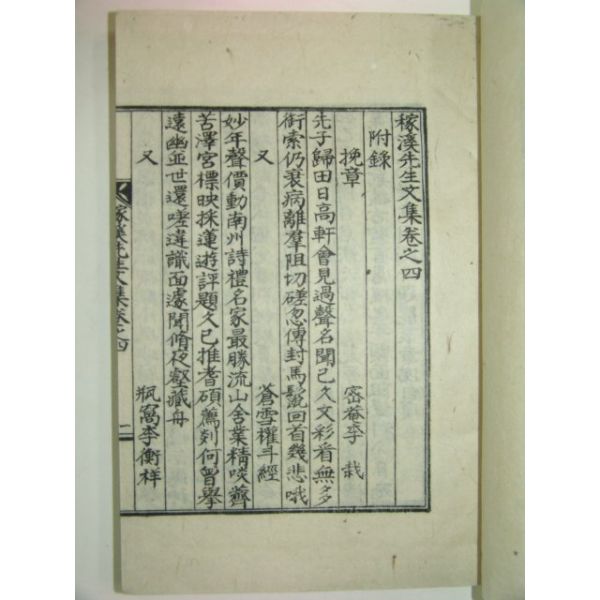 稼溪先生文集卷之四
附錄
挽章 密菴李 栽
先子歸田日高軒會見過聲名聞已久文彩看無多
銜索仍衰病離羣阻切磋忽傳封馬鬛回首幾悲哦
又 蒼雪權斗經
妙年聲價動南州詩禮名家最勝流山舍業精啖虀
苦澤宮標映採蓮遊評題久已推耆碩薦剡何曾擧
遠幽並世還嗟違識面遽聞脩夜壑藏舟
又 甁窩李衡祥
稼溪先生文集卷之四 一